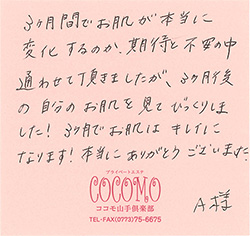 3ヶ月間でお肌が本当に
変化するのか、期待と不安の中
通わせて頂きましたが、3ヶ月後
の自分のお肌を見てびっくりしま
した!3ヶ月でお肌はキレイに
なります!本当にありがとうございました。
プライベートエステ
COCOMO
ココモ山手倶楽部
TEL・FAX(0773)75-6675
A様